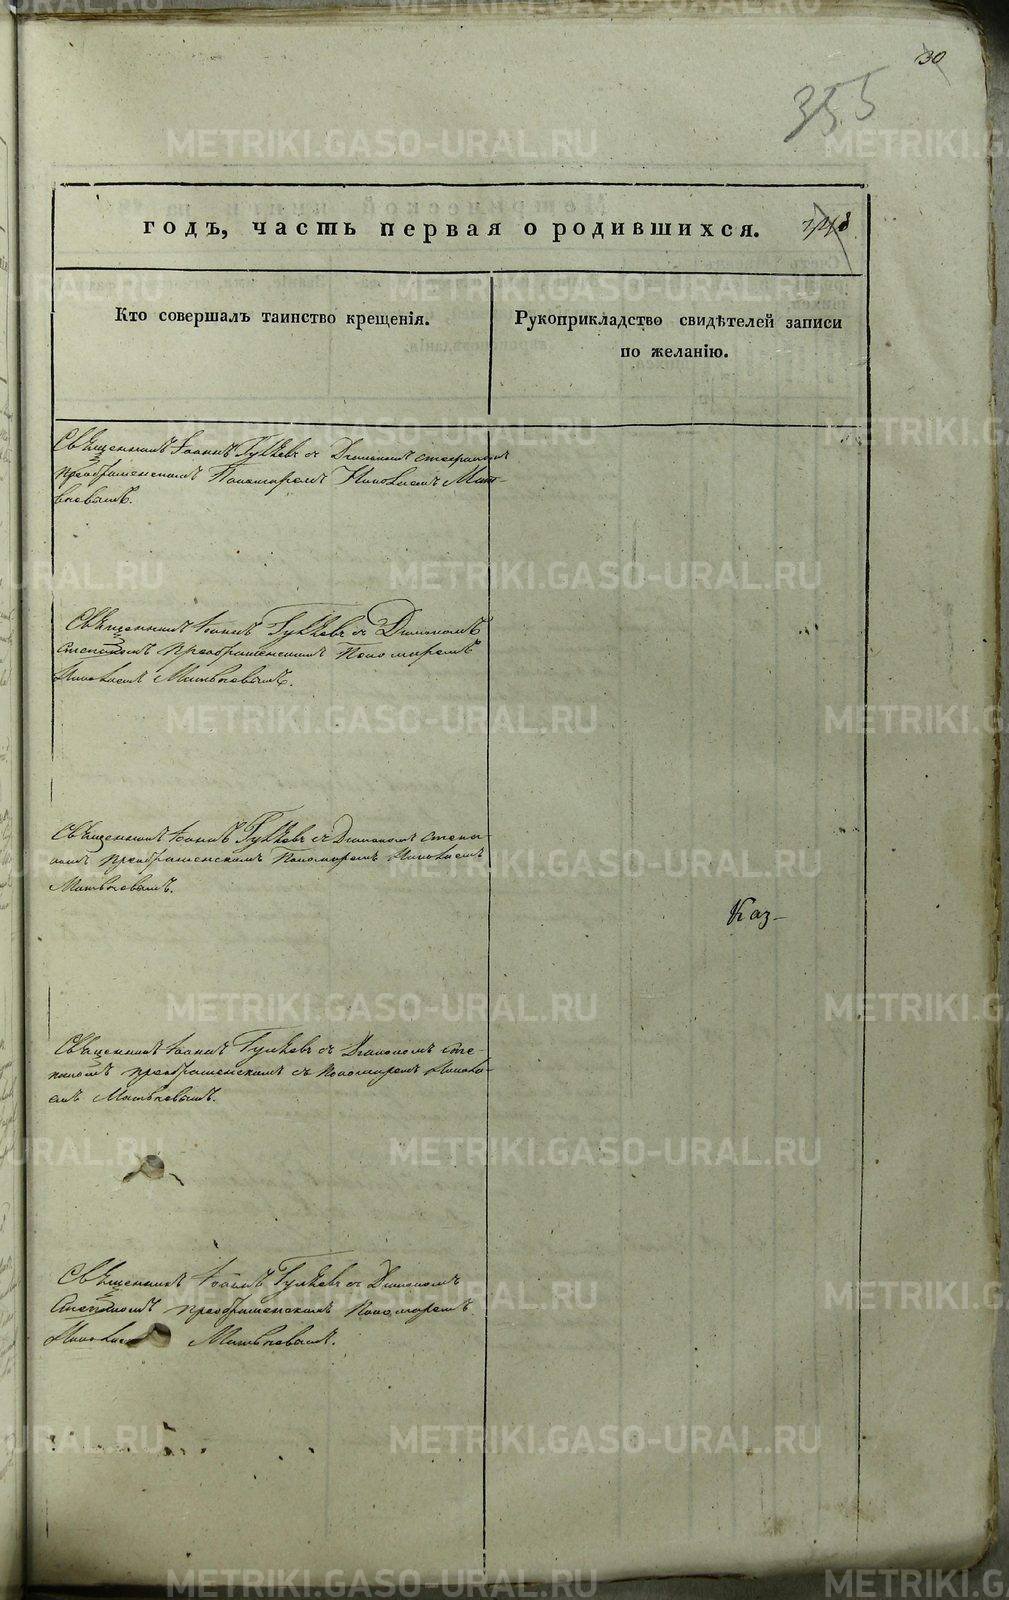 30
355
годъ, часть первая о родившихся.
Кто совершалъ таинство крещенія.
Рукоприкладство свидѣтелей записи
по желанію.
Священникъ Іоаннъ съ Діакономъ
Преображенскимъ Пономаремъ Николаемъ Мат-
вѣевымъ.
Священникъ Іоаннъ съ Діакономъ
Стефаномъ Преображенскимъ Пономаремъ
Николаемъ Матвѣевымъ.
Священникъ Іоаннъ съ Діакономъ Стефа-
номъ Преображенскимъ Пономаремъ Николаемъ
Матвѣевымъ.
Каз-
Священникъ Іоаннъ съ Діакономъ Сте-
Преображенскимъ съ Пономаремъ Никола-
емъ Матвѣевымъ.
Священникъ Іоаннъ съ Діакономъ
Стефаномъ Преображенскимъ Пономаремъ
Матвѣевымъ.
METRIKI.GASO-URAL.RU